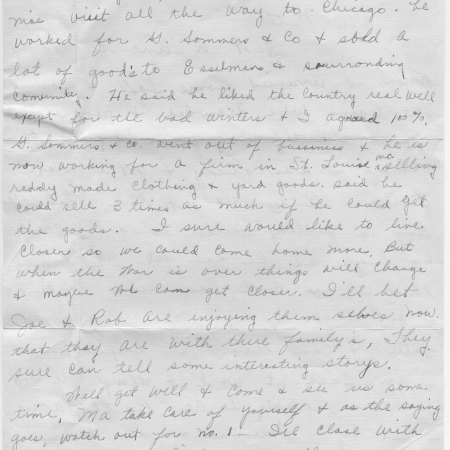 nice visit all the way to Chicago. he
worked for G. Sommers & Co & sold a
lot of goods to Esselmens & sourronding
comunity. He said he liked the Country real well
exept for the bad winters & I agreed 100%.
G. Sommers & co. went out of bussiness & he is
now working for a firm in St. Louise mo. sellling
reddy made clothing & yard goods. said he
could sell 3 times as much if he could get
the goods. I sure would like to live
closer so we could come home more, But
when the War is over things will change
& maybe we can get closer. I'll bet
Joe & Rob are enjoying them selves now.
that they are with there family's, They
sure can tell some interesting storys.
Well get well & come & see us some
time, Ma take care of yourself & as the saying
goes, watch out for no. 1 - I'll close with